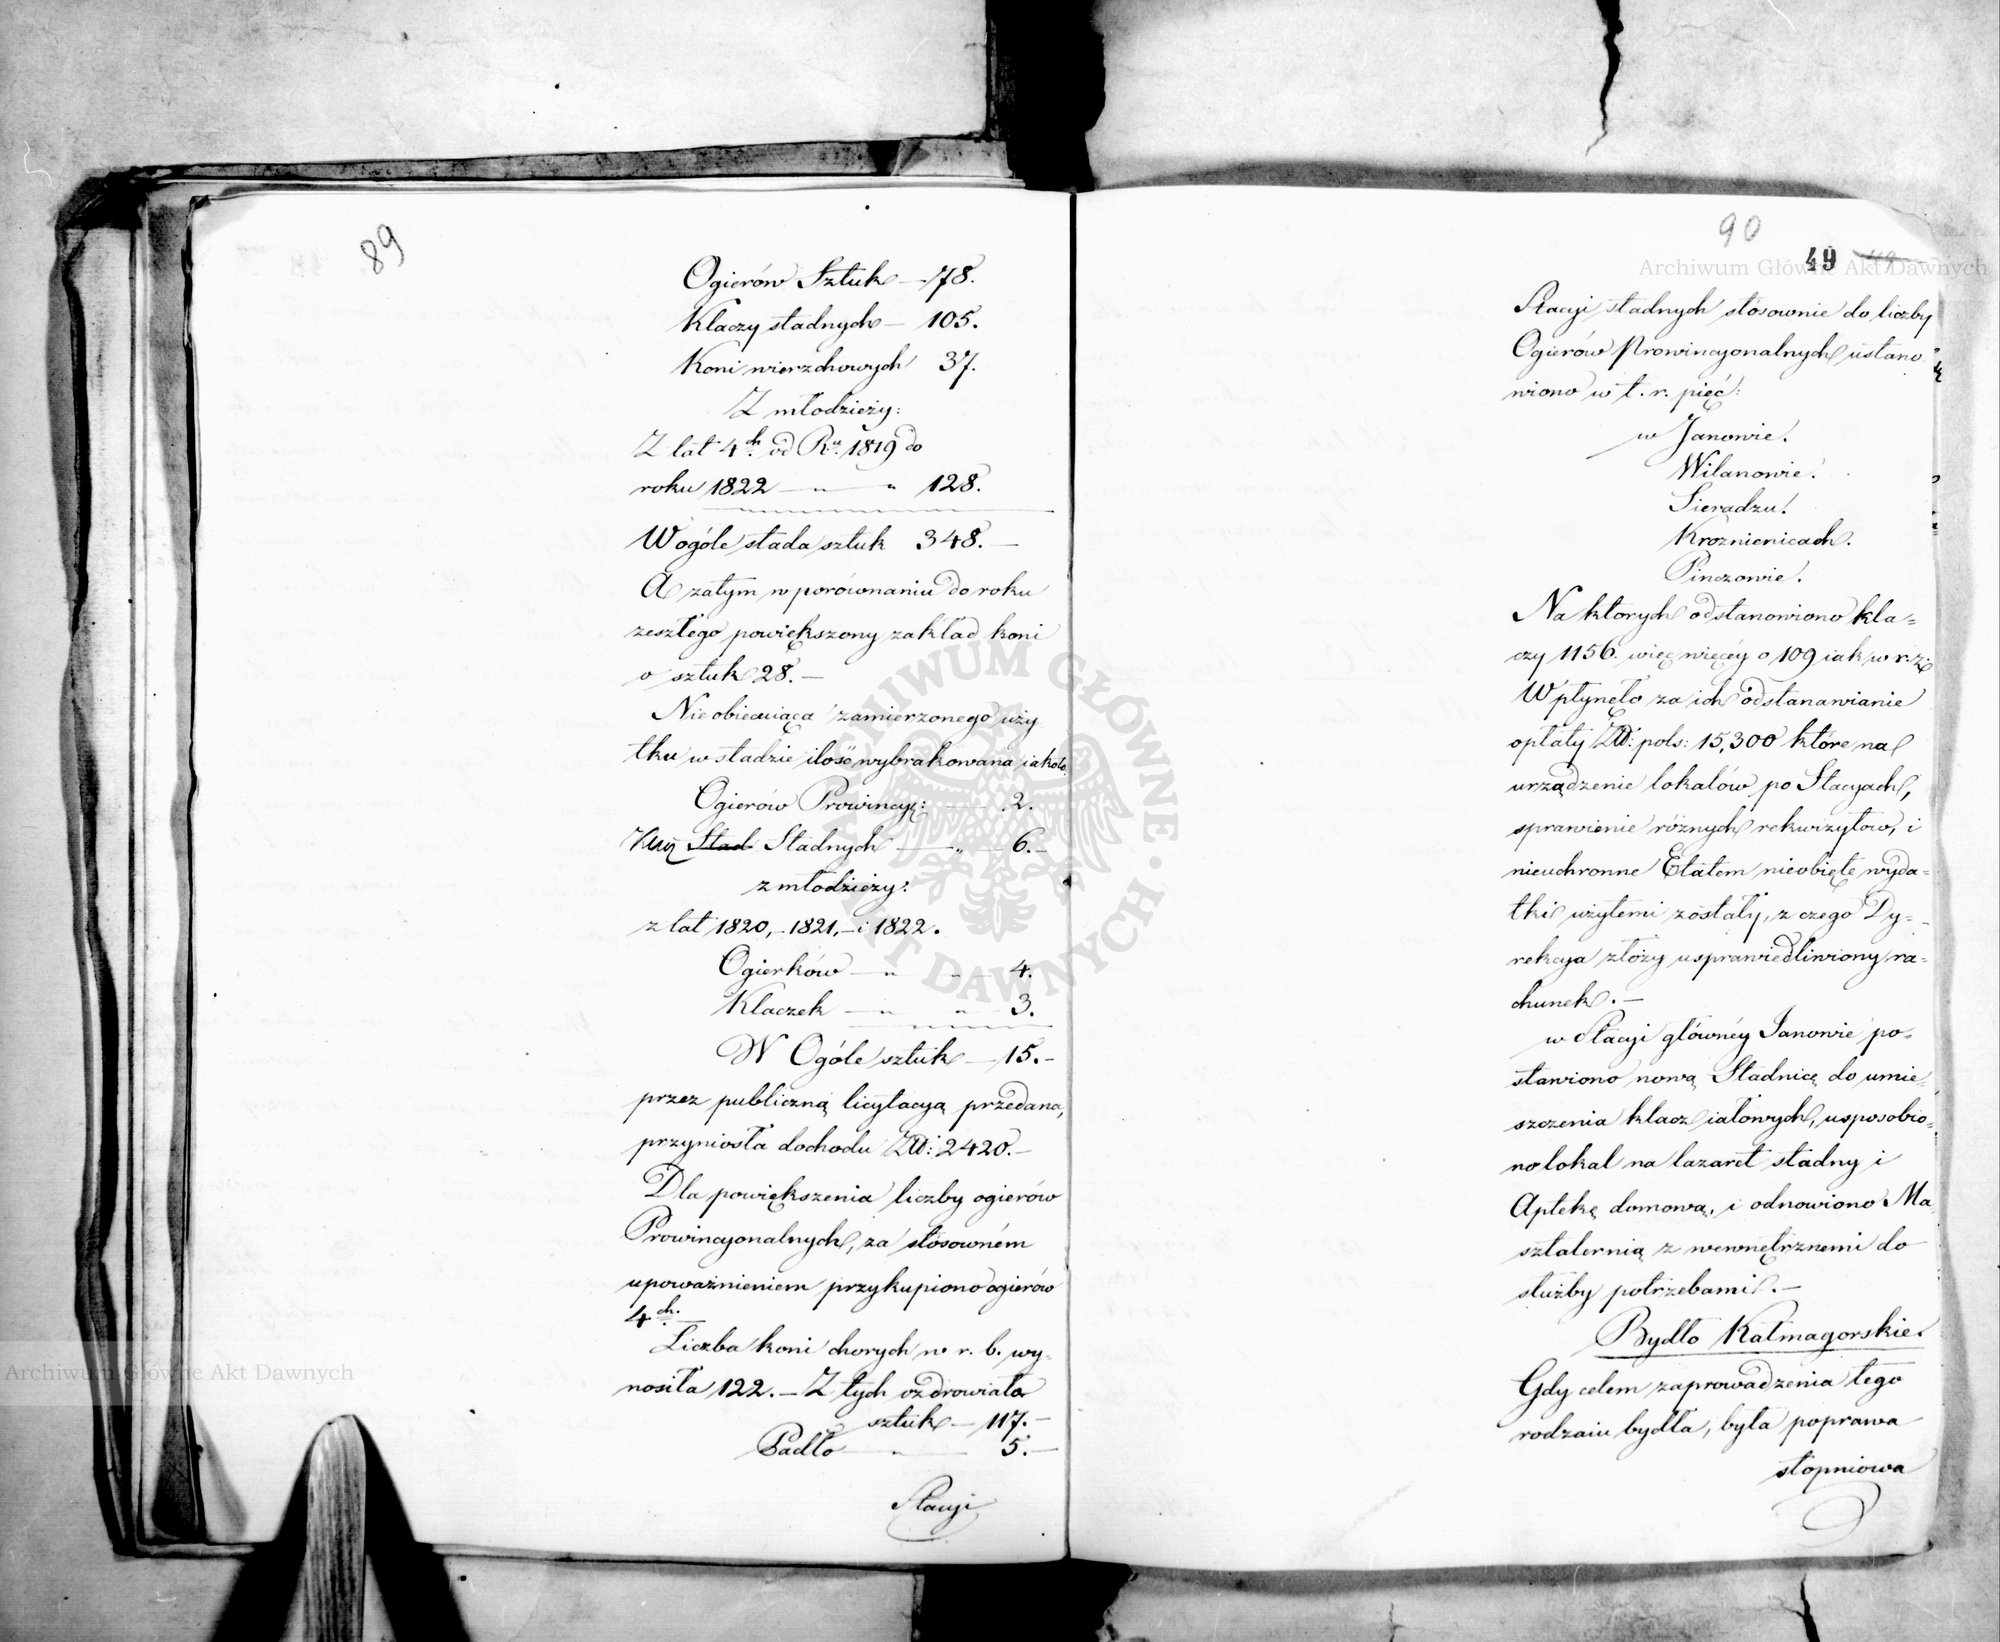 89
Ogierów Sztuk — 78.
Klaczy stadnych — 105.
Koni wierzchowych 37.
Z młodzieży:
Z lat 4ch od Ru 1819 do
roku 1822 — " — " 128.
W ogóle stada sztuk 348. —
A zatym w porównaniu do roku
zeszłego powiększony zakład koni
o sztuk 28. —
Nieobiecuiąca zamierzonego uży
tku w stadzie ilość wybrakowana iakoto
Ogierów Prowincyi: — 2.
Stad Stadnych — " — 6. —
z młodzieży:
z lat 1820, — 1821, — i 1822.
Ogierków — " — " — 4.
Klaczek — " — " — 3.
W Ogóle sztuk — 15. —
przez publiczną licytacyą przedana,
przyniosła dochodu Złł: 2420. —
Dla powiększenia liczby ogierów
Prowincyonalnych, za stósowném
upoważnieniem przykupiono ogierów
4ch. —
Liczba koni chorych w r. b. wy-
nosiła 122. — Z tych ozdrowiało
sztuk — 117. —
Padło — " — 5. —
Stacyi
90
49 48
Stacyi stadnych stósownie do liczby
Ogierów Prowincyonalnych ustano
wiono w t. r. pięć:
w Janowie.
Wilanowie.
Sieradzu.
Kroznienicach.
Pinczowie.
Na ktorych odstanowiono kla=
czy 1156. więc więcéy o 109 iak w r. z.
Wpłynęło za ich odstanawianie
opłaty Złł: pols: 15,300 które na
urządzenie lokalów po Stacyach,
sprawienie różnych rekwizytow, i
nieuchronne Etatem nieobięte wyda=
tki użytemi zostały, z czego Dy=
rekcya złoży usprawiedliwiony ra=
chunek. —
w Stacyi główney Janowie po=
stawiono nową Stadnicę do umie=
szczenia klacz iałowych, usposobio=
no lokal na lazaret stadny i
Aptekę domową, i odnowiono Ma
sztalernią z wewnętrznemi do
służby potrzebami. —
Bydło Kałmagorskie.
Gdy celem zaprowadzenia tego
rodzaiu bydła, była poprawa
stopniowa
Archiwum Główne Akt Dawnych
Archiwum Główne Akt Dawnych
ARCHIWUM GŁÓWNE AKT DAWNYCH